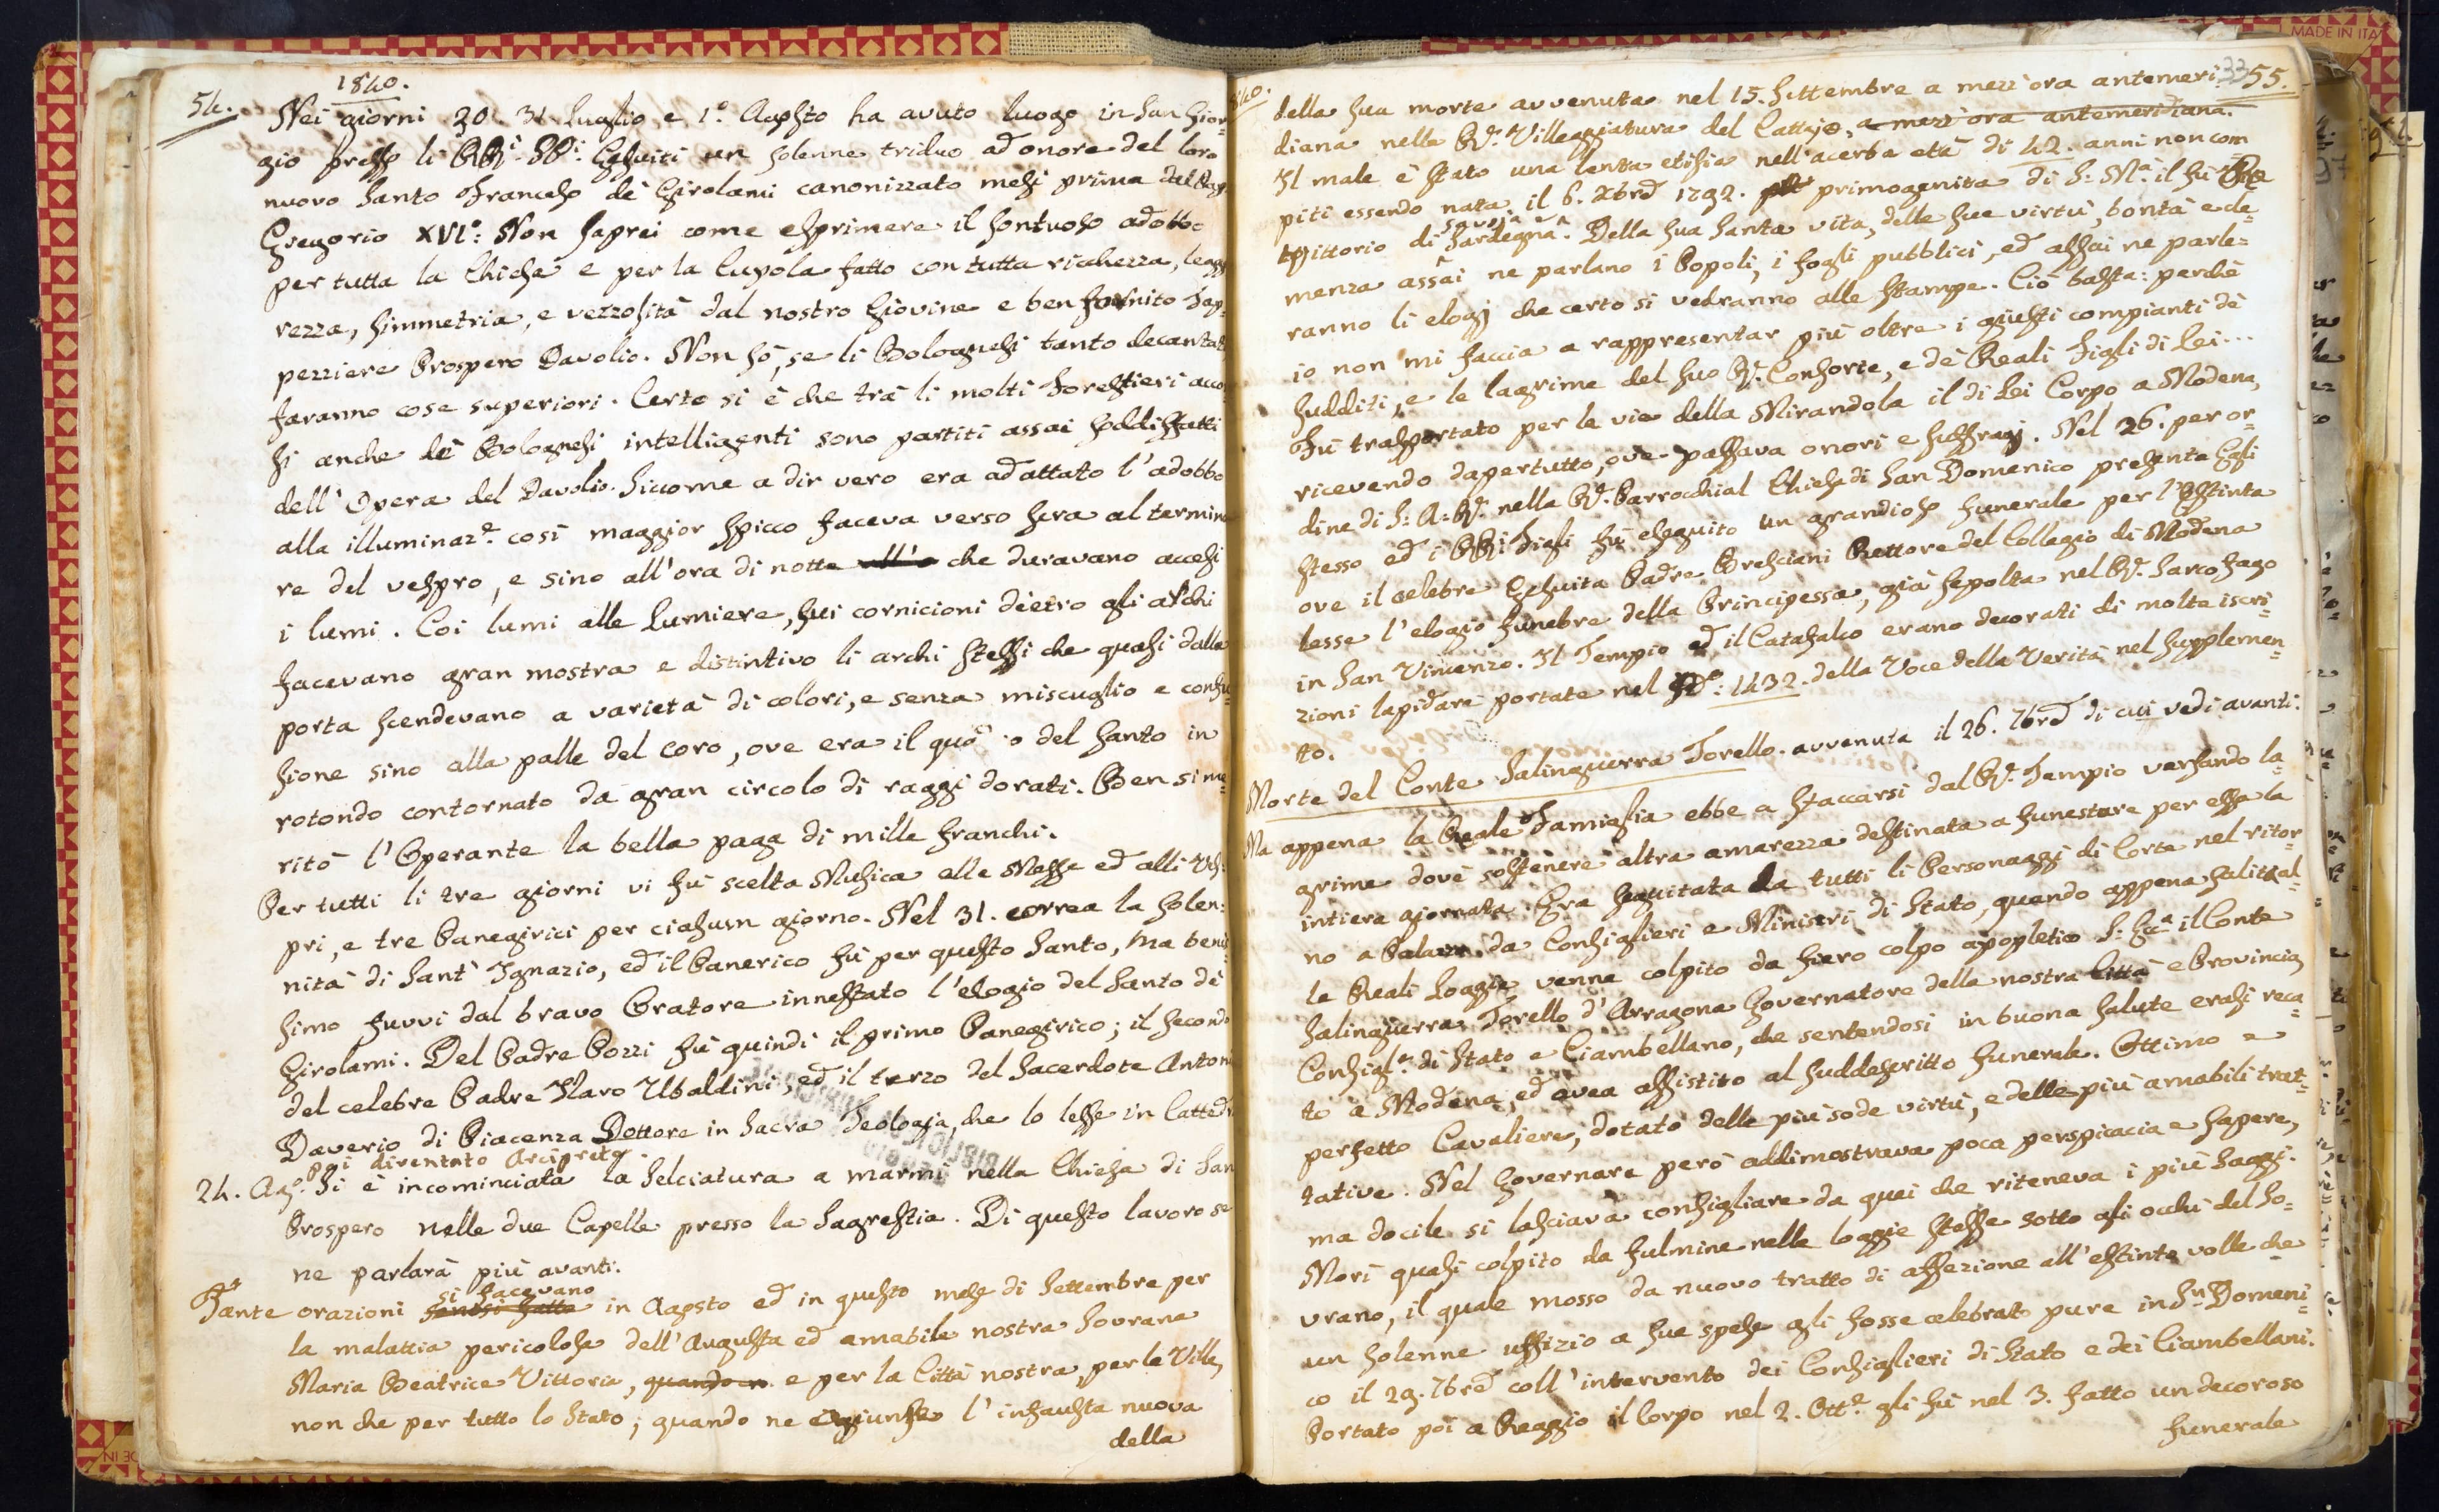 54.
1840.
Nei giorni 30. 31. Luglio e 1.º Agosto ha avuto luogo in San Gior=
gio presso li RR.i PP.i Gesuiti un solenne triduo ad onore del loro
nuovo Santo Francesco de' Girolami canonizzato mesi prima dal
Gregorio XVI.º: Non saprei come esprimere il sontuoso adobbo
per tutta la Chiesa e per la Cupola fatto con tutta richezza, legg
rezza, simmetria, e vezzosità dal nostro Giovine e ben fornito Tap=
pezziere Prospero Davolio. Non sò, se li Bolognesi tanto decantat
faranno cose superiori. Certo si è che trà li molti Forestieri accor
si anche de' Bolognesi intelligenti sono partiti assai soddisfatti
dell' Opera del Davolio. Siccome a dir vero era adattato l'adobbo
alla illuminaz.e così maggior spicco faceva verso sera al termina
re del vespro, e sino all'ora di notte che duravano accesi
i lumi. Coi lumi alle Lumiere, sui cornicioni dietro gli archi
facevano gran mostra e distintivo li archi stessi che quasi dalla
porta scendevano a varietà di colori, e senza miscuglio e confu=
sione sino alla palle del coro, ove era il quà o del Santo in
rotondo contornato da gran circolo di raggi dorati. Ben si me=
ritò l'Operante la bella paga di mille franchi.
Per tutti li tre giorni vi fù scelta Musica alle Messe ed alli Ves=
pri, e tre Panegirici per ciasun giorno. Nel 31. correa la solen=
nità di Sant' Ignazio, ed il Panerico fù per questo Santo, ma benis
simo fuvvi dal bravo Oratore innestato l'elogio del Santo de'
Girolami. Del Padre Pozzi fù quindi il primo Panegirico; il secondo
del celebre Padre Ilaro Ubaldini, ed il terzo del Sacerdote Antoni
Daverio di Piacenza Dottore in Sacra Teologia, che lo lesse in Catted
poi diventato Arciprete.
24. Ag.º Si è incominciata la selciatura a marmi nella Chiesa di San
Prospero nelle due Capelle presso la Sagrestia. Di questo lavoro se
ne parlarà più avanti.
si facevano
Tante orazioni sentsi fatte in Agosto ed in questo mese di Settembre per
la malattia pericolosa dell' Augusta ed amabile nostra Sovrana
Maria Beatrice Vittoria, quando e per la Città nostra, per le Ville,
non che per tutto lo Stato; quando ne giunse l'infausta nuova
della
840.
33
55.
della sua morte avvenuta nel 15. Settembre a mezz'ora antemeri=
diana nella R.e Villeggiatura del Cattajo, a mezz'ora antemeridiana.
Il male è stato una lenta etisia nell'acerba età di 42. anni non com
piti essendo nata il 6. Xbre 1792. primogenita di S: M.a il fù Rè
Savoja
Vittorio di Sardegna. Della sua santa vita, delle sue virtù, bontà e cle=
menza assai ne parlano i Popoli, i fogli pubblici, ed assai ne parle=
ranno li elogj che certo si vedranno alle stampe. Ciò basta: perchè
io non mi faccia a rappresentar più oltre i giusti compianti de'
sudditi, e le lagrime del suo R.e Consorte, e de' Reali Figli di Lei...
Fù trasportato per le vie della Mirandola il di Lei Corpo a Modena,
ricevendo dapertutto, ove passava onori e suffragj. Nel 26. per or=
dine di S: A: R.e nella R.e Parrocchial Chiesa di San Domenico presente Egli
stesso ed i RR.i Figli fù eseguito un grandioso funerale per l'Estinta
ove il celebre Gesuita Padre Bresciani Rettore del Collegio di Modena
lesse l'elogio funebre della Principessa, già sepolta nel R.e Sarcofago
in San Vincenzo. Il Tempio ed il Catafalco erano decorati di molte iscri=
zioni lapidare portate nel N.º: 1432. della Voce della Verità nel supplemen=
to.
Morte del Conte Salinguerra Torello. avvenuta il 26. 7bre di cui vedi avanti.
Ma appena la Reale Famiglia ebbe a staccarsi dal R.e Tempio versando la=
grime dovè sostenere altra amarezza destinata a funestare per essa la
intiera giornata. Era seguitata da tutti li Personaggi di Corte nel ritor=
no a Palazzo, da Consiglieri e Ministri di Stato, quando appena salitt al=
le Reali Loggie venne colpito da fiero colpo apopletico S: Ecc.a il Conte
Salinguerra Torello d'Arragona Governatore della nostra Città e Provincia,
Consigl.e di Stato e Ciambellano, che sentendosi in buona salute erasi reca=
to a Modena, ed avea assistito al suddescritto funerale. Ottimo e
perfetto Cavaliere, dotato delle più sode virtù, e delle più amabili trat=
tative. Nel Governare però addimostrava poca perspicacia e sapere,
ma docile si lasciava consigliare da quei che riteneva i più saggi.
Morì quasi colpito da fulmine nelle loggie stesse sotto gli occhi del So=
vrano, il quale mosso da nuovo tratto di affezione all'estinto volle che
un solenne uffizio a sue spese gli fosse celebrato pure in S.n Domeni=
co il 29. 7bre coll'intervento dei Consiglieri di Stato e dei Ciambellani.
Portato poi a Reggio il Corpo nel 2. Ott.e gli fù nel 3. fatto un decoroso
funerale
MADE IN ITA